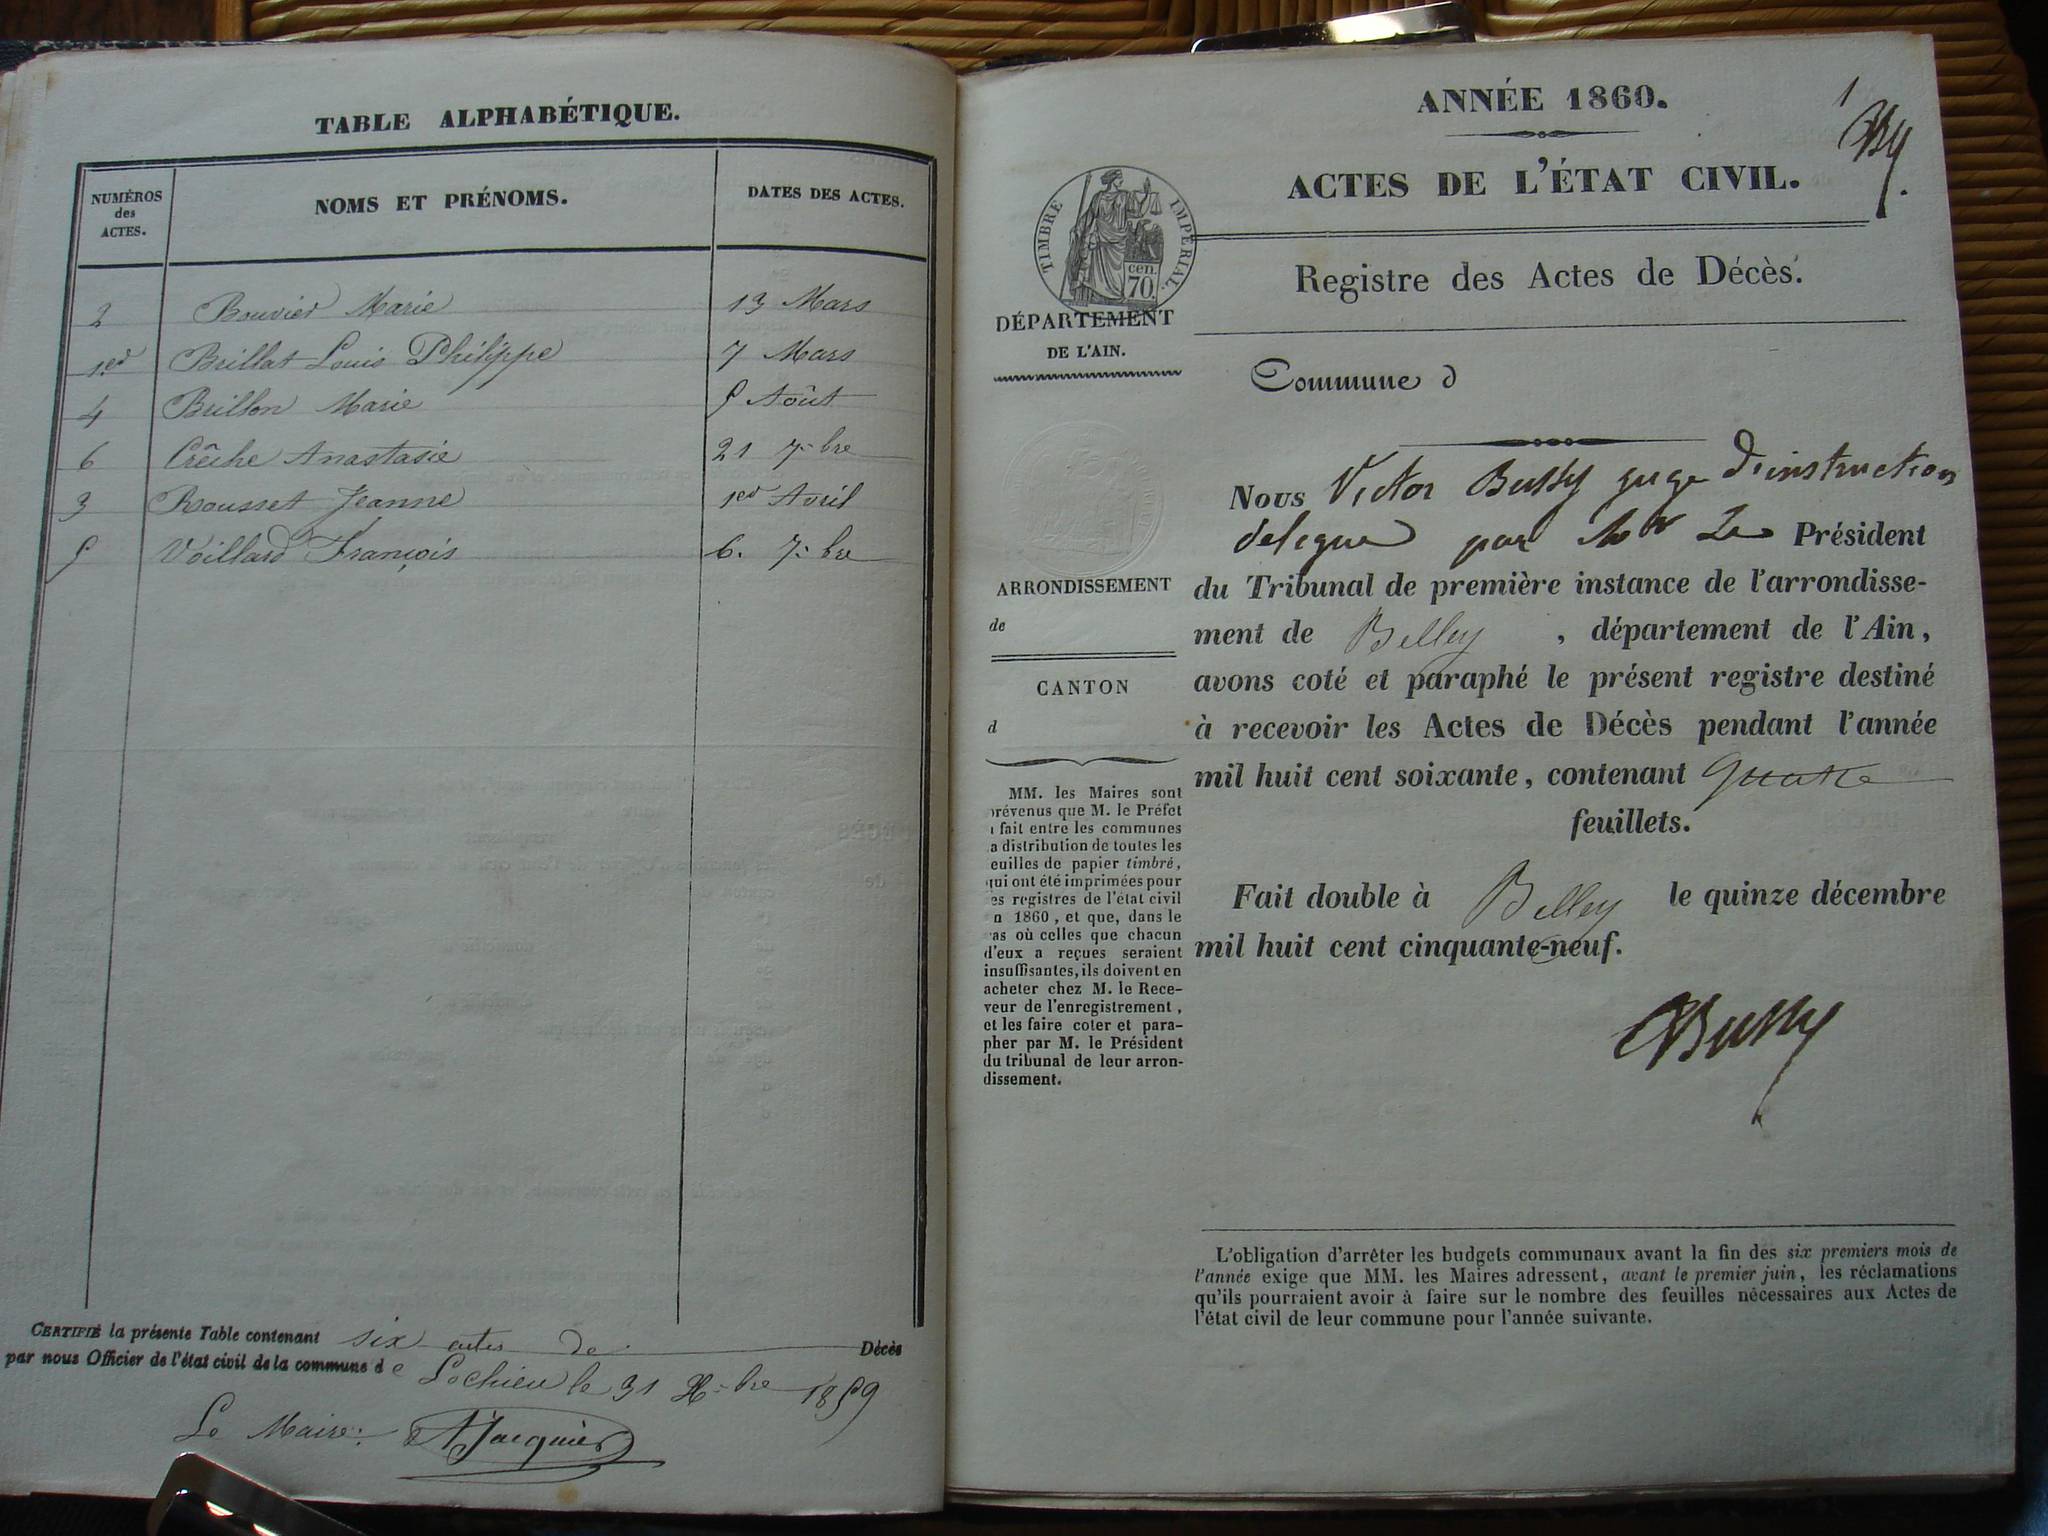 TABLE ALPHABÉTIQUE.
NUMÉROS
des
ACTES.
NOMS ET PRÉNOMS.
DATES DES ACTES.
2 Bouvier Marie 13 Mars
1er Brillat Louis Philippe 7 Mars
4 Brillon Marie 5 Août
6 Crêche Anastasie 21 7.bre
3 Rousset Jeanne 1er Avril
5 Voillard François 6. 7.bre
CERTIFIÉ la présente Table contenant six actes de Décès
par nous Officier de l'état civil de la commune de Lochieu le 31 X.bre 1859
Le Maire: Jacquier
1
ANNÉE 1860.
ACTES DE L'ÉTAT CIVIL.
TIMBRE IMPÉRIAL.
cen.
70.
Registre des Actes de Décès.
DÉPARTEMENT
DE L'AIN.
Commune d
Nous Victor Bussy juge d'instruction
delegué par Mr Le Président
du Tribunal de première instance de l'arrondisse-
ment de Belley, département de l'Ain,
avons coté et paraphé le présent registre destiné
à recevoir les Actes de Décès pendant l'année
mil huit cent soixante, contenant quatre
feuillets.
Fait double à Belley le quinze décembre
mil huit cent cinquante-neuf.
Bussy
ARRONDISSEMENT
de
CANTON
d
MM. les Maires sont
prévenus que M. le Préfet
a fait entre les communes
la distribution de toutes les
feuilles de papier timbré,
qui ont été imprimées pour
les registres de l'état civil
en 1860, et que, dans le
cas où celles que chacun
d'eux a reçues seraient
insuffisantes, ils doivent en
acheter chez M. le Rece-
veur de l'enregistrement,
et les faire coter et para-
pher par M. le Président
du tribunal de leur arron-
dissement.
L'obligation d'arrêter les budgets communaux avant la fin des six premiers mois de
l'année exige que MM. les Maires adressent, avant le premier juin, les réclamations
qu'ils pourraient avoir à faire sur le nombre des feuilles nécessaires aux Actes de
l'état civil de leur commune pour l'année suivante.